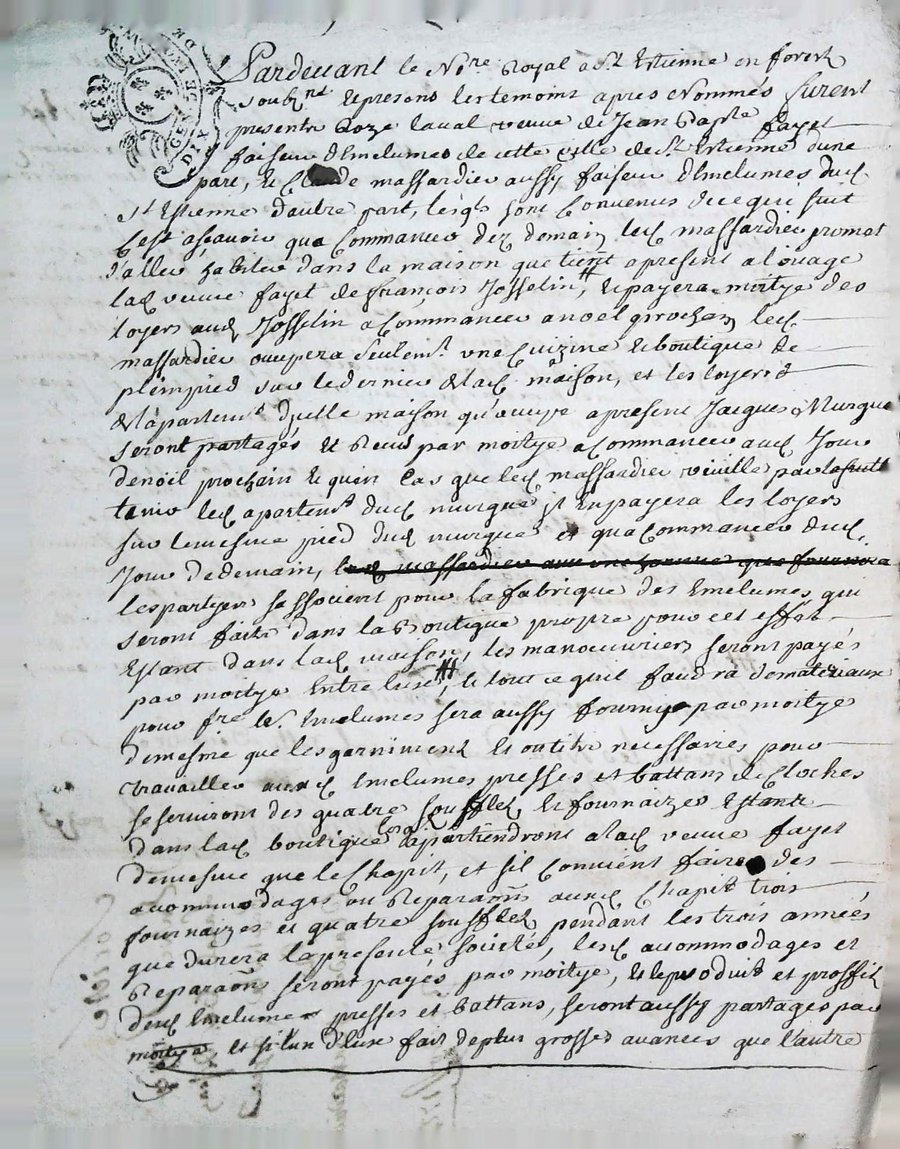 GEN DE
DIX
Pardevant le No.re Royal a S.t Estienne en forest
soub.né et presens les temoins apres Nommés furent
presents Roze laval veuve de Jean Bap.te fayet
faiseur d'Enclumes de cette ville de S.t Estienne d'une
part, et Claude massardier aussy faiseur d'Enclumes dud
S.t Estienne d'autre part, lesq.ls sont Convenus de ce qui suit
C'est ascavoir qu'a Commancer dez demain led massardier promet
d'aller habiter dans la maison que tient apresent a louage
lad veuve fayet de françois Josselin, et payera moitye des
loyers aud Josselin a Commancer a noel prochain led
massardier occupera seulem.t une Cuizine et boutique de
pleinpied sur le dernier de lad maison, et les loyers
de l'apartem.t d'yelle maison qu'occupe apresent Jacques Murgue
seront partagés et Receus par moitye a Commancer aud Jour
de noel prochain et qu'en Cas que led massardier veuille par la suitte
tenir led apartem.t dud murgue il en payera les loyers
sur le mesme pied dud murgue et qu'a Commancer dud
Jour de demain, led massardier aura une que fournira
les partyes s'assoient pour la fabrique des Enclumes qui
seront faits dans la Boutique propre pour cet effet
Estant dans lad maison, les manoeuvriers seront payés
par moitye Entre luse, et tout ce quil faudra de materiaux
pour f.re les Enclumes sera aussy fourny par moitye
de mesme que les garniments et outils necessaires pour
travailler auxd Enclumes presses et battans de Cloches
se serviront des quatre soufflets et fournaizes Estants
dans lad boutique lesq apartiendront a lad veuve fayet
de mesme que le Chapit, et sil Convient faire des
accommodages ou Reparaons auxd Chapit trois
fournaizes et quatre soufflets pendant les trois années
que durera la presente societé, lesd accommodages et
Reparaons seront payés par moitye, et le produit et proffit
desd Enclumes presses et battans, seront aussy partagés par
moitye et si l'un d'iux fait de plus grosses avances que l'autre